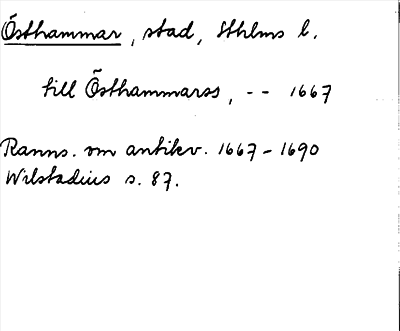 Östhammar, stad, Sthlms l.
till Östhammarss, -- 1667
Ranns. om antikv. 1667-1690
Wilstadius s. 87.